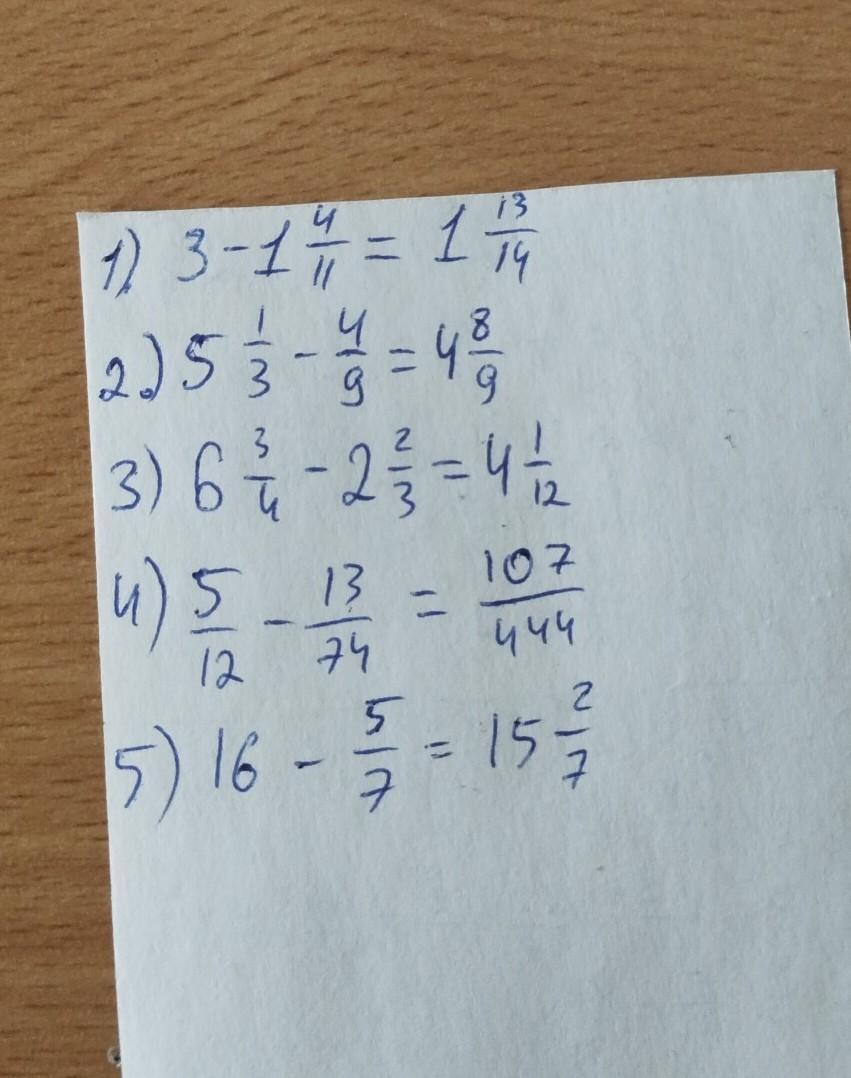 1) 3 - 1 4/11 = 1 13/14
2.) 5 1/3 - 4/9 = 4 8/9
3) 6 3/4 - 2 2/3 = 4 1/12
4) 5/12 - 13/74 = 107/444
5) 16 - 5/7 = 15 2/7